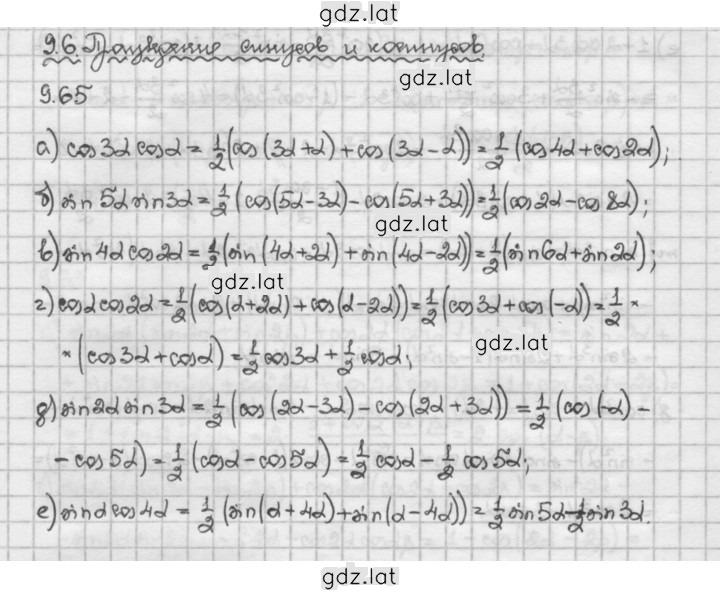 gdz.lat
9.6. Произведение синусов и косинусов
gdz.lat
9.65
а) cos3α cosα = 1/2 (cos(3α+α) + cos(3α-α)) = 1/2 (cos4α+cos2α);
б) sin5α sin3α = 1/2 (cos(5α-3α) - cos(5α+3α)) = 1/2 (cos2α-cos8α);
gdz.lat
в) sin4α cos2α = 1/2 (sin(4α+2α) + sin(4α-2α)) = 1/2 (sin6α+sin2α);
gdz.lat
г) cosα cos2α = 1/2 (cos(α+2α) + cos(α-2α)) = 1/2 (cos3α+cos(-α)) = 1/2 ×
× (cos3α+cosα) = 1/2 cos3α + 1/2 cosα;
gdz.lat
д) sin2α sin3α = 1/2 (cos(2α-3α) - cos(2α+3α)) = 1/2 (cos(-α) -
- cos5α) = 1/2 (cosα-cos5α) = 1/2 cosα - 1/2 cos5α;
е) sinα cos4α = 1/2 (sin(α+4α) + sin(α-4α)) = 1/2 sin5α - 1/2 sin3α.
gdz.lat